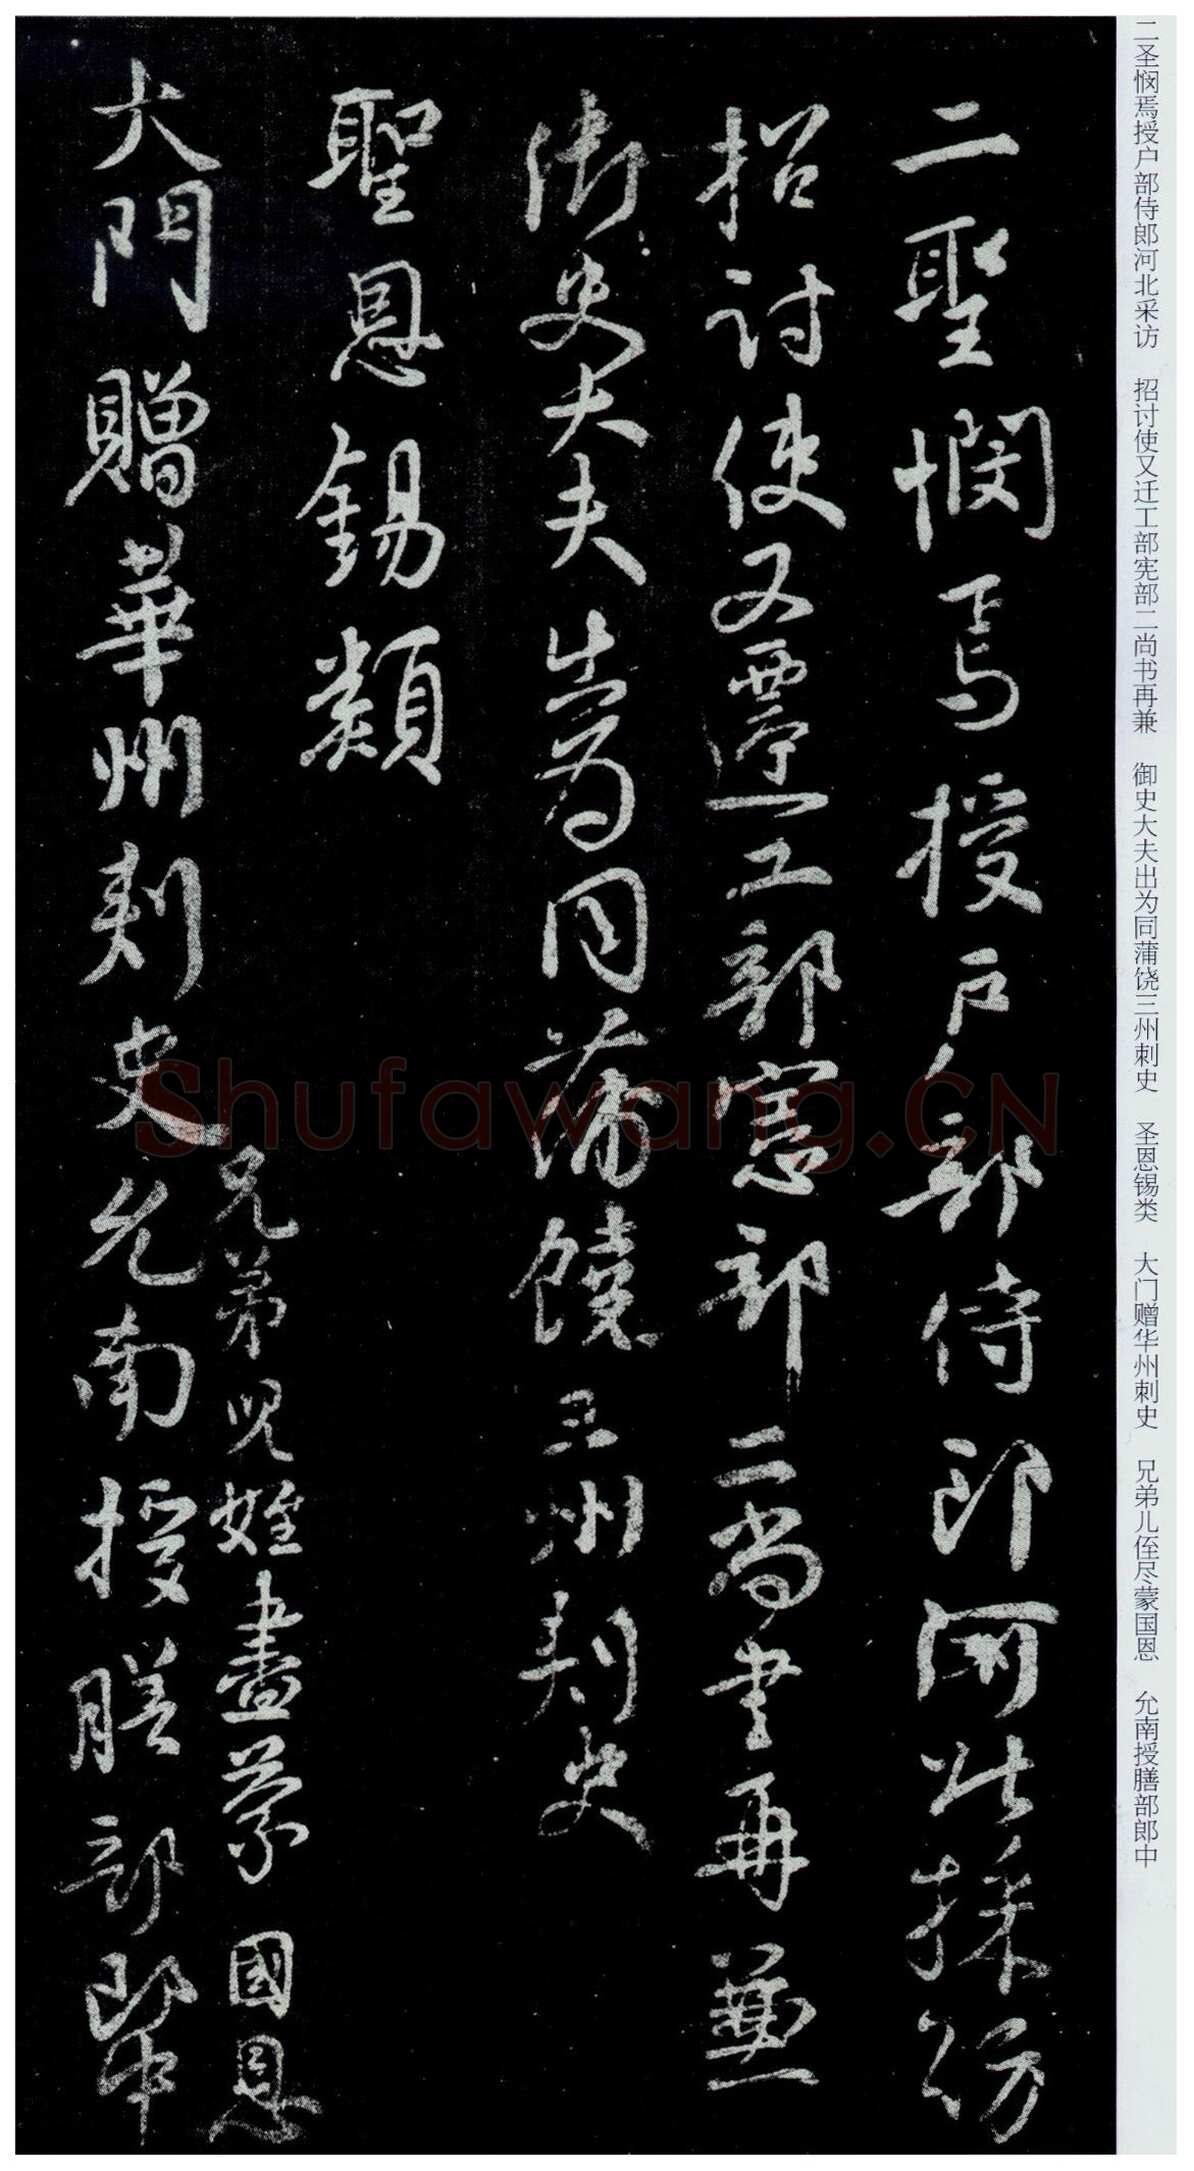 二圣悯焉授户部侍郎河北采访 招讨使又迁工部宪部二尚书再兼 御史大夫出为同蒲饶三州刺史 圣恩锡类 大门赠华州刺史 兄弟儿侄尽蒙国恩 允南授膳部郎中
二聖憫焉授户部侍郎河北採訪
招討使又遷工部憲部二尚書再兼
御史大夫出為同蒲饒三州刺史
聖恩錫類
兄弟兒姪盡蒙國恩
大門贈華州刺史允南授膳部郎中
Shufawang.CN